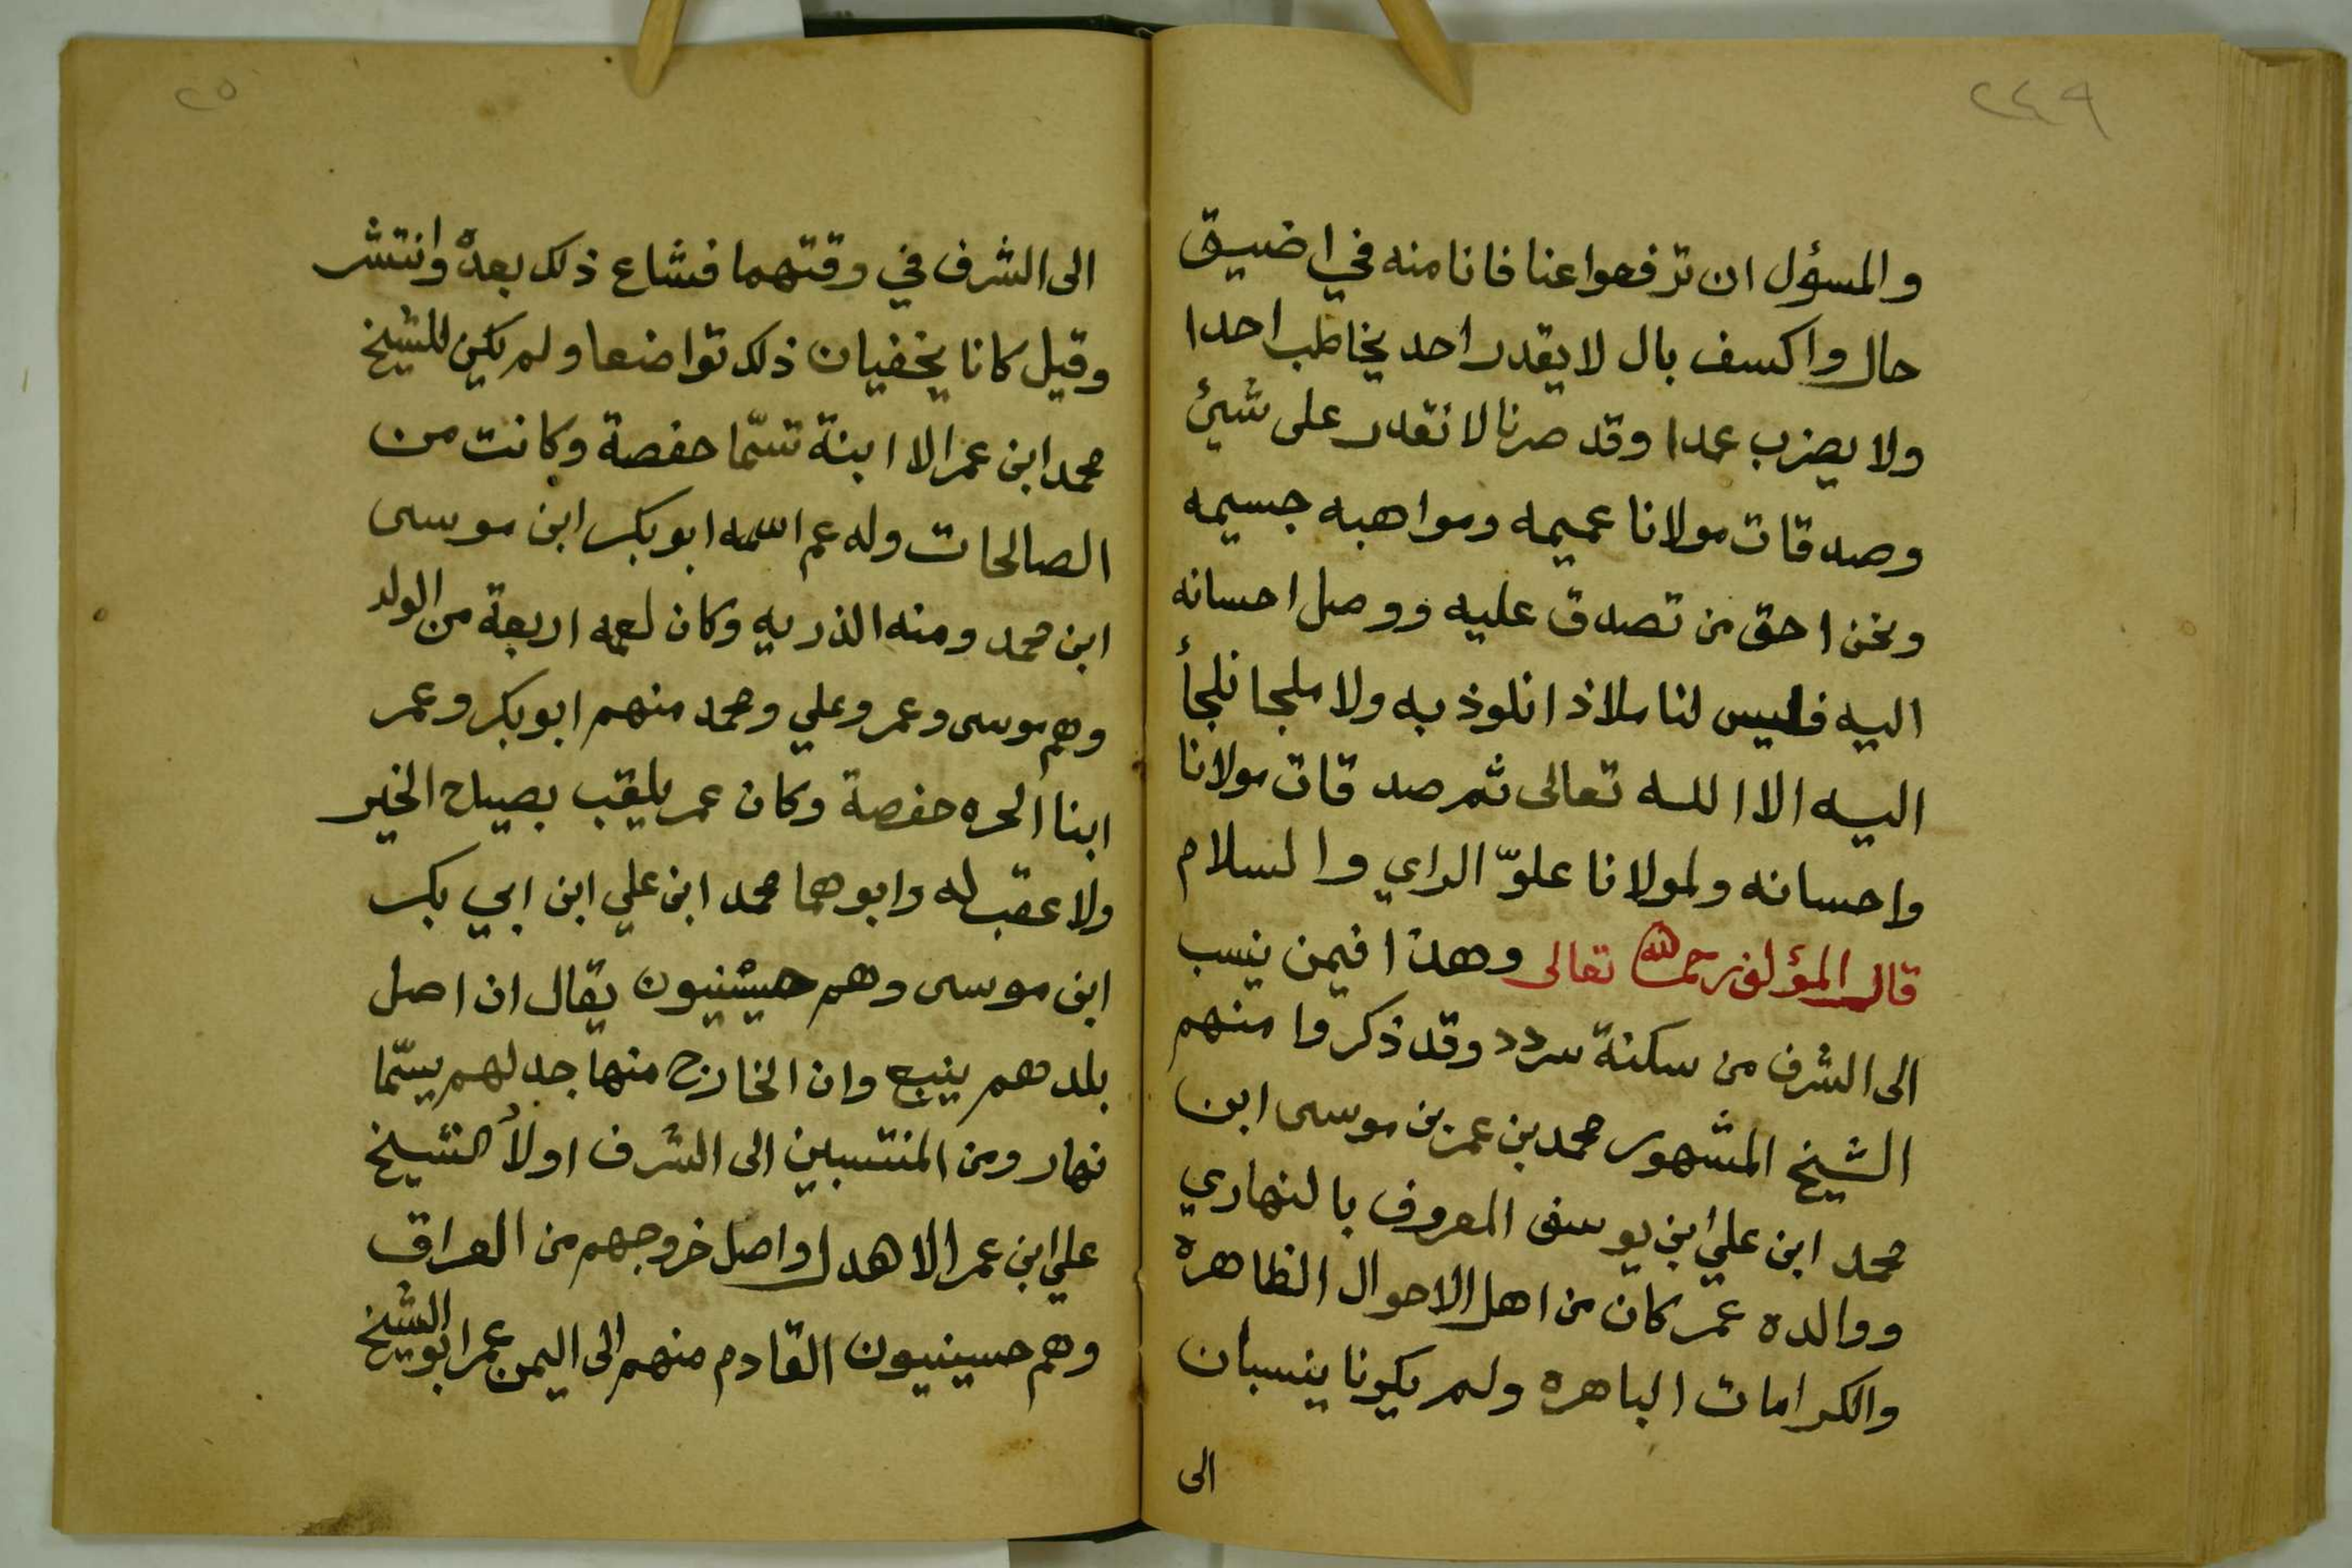 ٢٤٩
والمسؤل ان ترفعوا عنا فانا منه في اضيق
حال واكسف بال لا يقدر احد يخاطب احدا
ولا يضرب عمدا وقد صرنا لا نقدر على شيئ
وصدقات مولانا عميمه ومواهبه جسيمه
ونحن احق من تصدق عليه ووصل احسانه
اليه فليس لنا ملاذا نلوذ به ولا ملجا نلجأ
اليه الا الله تعالى ثم صدقات مولانا
واحسانه ولمولانا علوّ الراي والسلام
قال المؤلف رحمه الله تعالى وهذا فيمن ينسب
الى الشرف من سكنة سردد وقد ذكروا منهم
الشيخ المشهور محمد بن عمر بن موسى ابن
محمد ابن علي ابن يوسف المعروف بالنهاري
ووالده عمر كان من اهل الاحوال الظاهرة
والكرامات الباهره ولم يكونا ينسبان
الى
٢٥
الى الشرف في وقتهما فشاع ذلك بعده وانتشر
وقيل كانا يخفيان ذلك تواضعا ولم يكن للشيخ
محمد ابن عمر الا ابنة تسمّا حفصة وكانت من
الصالحات وله عم اسمه ابو بكر ابن موسى
ابن محمد ومنه الذريه وكان لعمه اربعة من الولد
وهم موسى وعمر وعلي ومحمد منهم ابو بكر وعمر
ابنا الحره حفصة وكان عمر يلقب بصباح الخير
ولا عقب له وابوهما محمد ابن علي ابن ابي بكر
ابن موسى وهم حسينيون يقال ان اصل
بلدهم ينبع وان الخارج منها جد لهم يسمّا
نهار ومن المنتسبين الى الشرف اولاً الشيخ
علي ابن عمر الاهدل واصل خروجهم من العراق
وهم حسينيون القادم منهم الى اليمن عمر ابو الشيخ